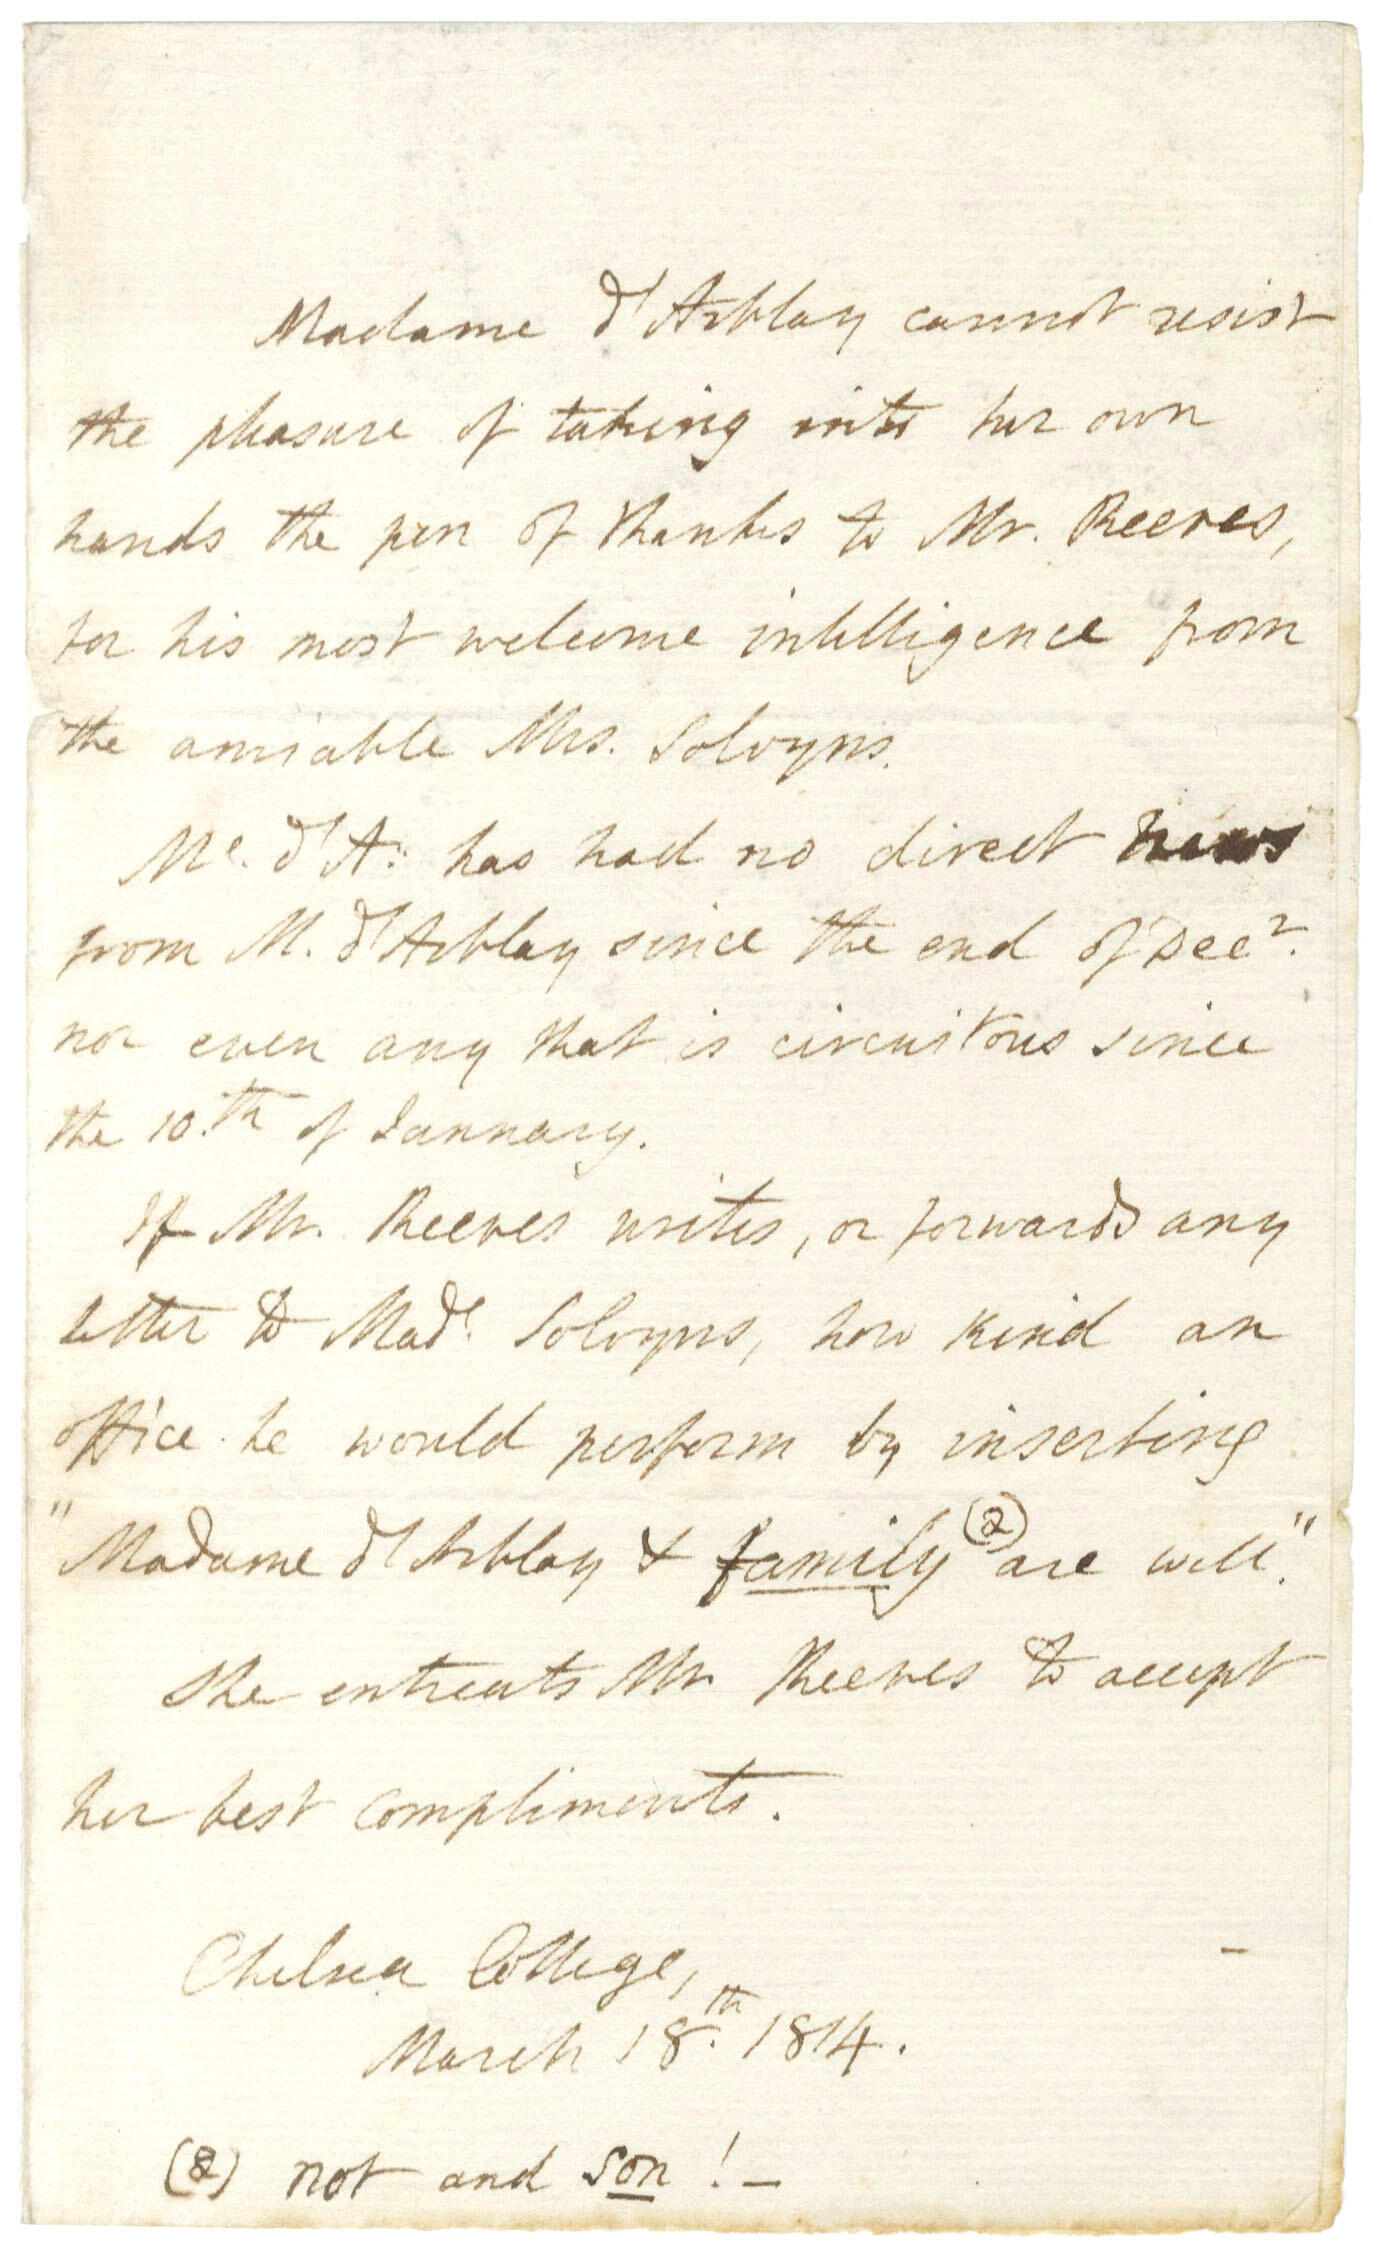 Madame d'Arblay cannot resist
the pleasure of taking into her own
hands the pen of thanks to Mr. Reeves,
for his most welcome intelligence from
the amiable Mrs. Solvyns.
Me. d'A: has had no direct news
from M. d'Arblay since the end of Decr.
nor even any that is circuitous since
the 10.th of January.
If Mr. Reeves writes, or forwards any
letter to Made. Solvyns, how kind an
office he would perform by inserting
"Madame d'Arblay & family (2) are well."
She entreats Mr Reeves to accept
her best compliments.
Chelsea College,
March 18.th 1814.
(2) not and son! —